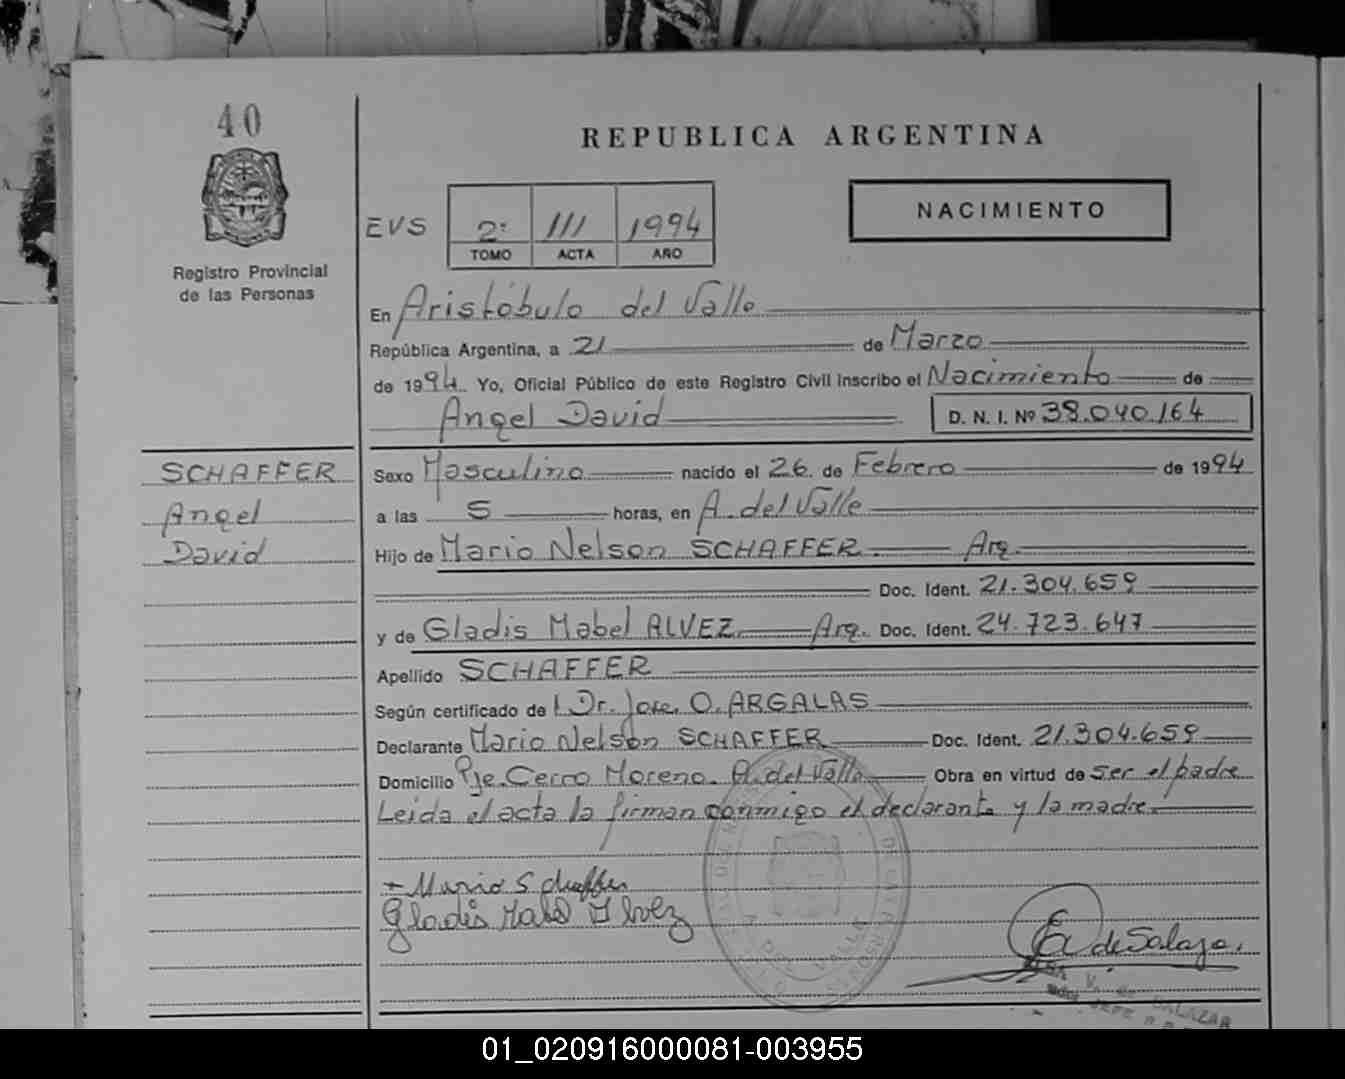 40
REPUBLICA ARGENTINA
NACIMIENTO
EVS 2º 111 1994
TOMO ACTA AÑO
Registro Provincial
de las Personas
En Aristóbulo del Valle
República Argentina, a 21 de Marzo
de 1994. Yo, Oficial Público de este Registro Civil inscribo el Nacimiento de
Angel David D. N. I. Nº 38.040.164
SCHAFFER
Angel
David
Sexo Masculino nacido el 26 de Febrero de 1994
a las 5 horas, en A. del Valle
Hijo de Mario Nelson SCHAFFER. Arg.
Doc. Ident. 21.304.659
y de Gladis Mabel ALVEZ Arg. Doc. Ident. 24.723.647
Apellido SCHAFFER
Según certificado de Dr. Jose O. ARGALAS
Declarante Mario Nelson SCHAFFER Doc. Ident. 21.304.659
Domicilio Pje. Cerro Moreno. A. del Valle Obra en virtud de ser el padre
Leida el acta la firman conmigo el declarante y la madre.
Mario Schaffer
Gladis Mabel Alvez
de Salazar
V. de SALAZAR
JEFE
01_020916000081-003955